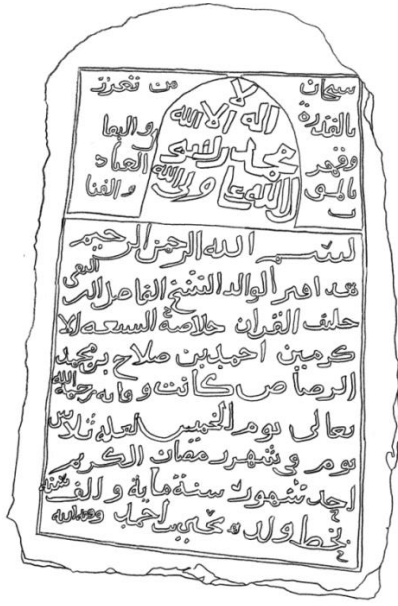 سبحان من تعزز
بالقدرة والبقا
وقهر العباد
بالموت والفنا
لا
اله الا الله
محمد رسول
الله علي ولي الله
بسم الله الرحمن الرحيم
هذا قبر الوالد الشيخ الفاضل البر التقي
حليف القران خلاصة الشيعه الا
كرمين احمد بن صلاح بن محمد
الرصاص كانت وفاته رحمه الله
تعالى يوم الخميس لعله ثلاث
يوم في شهر رمضان الكريم
احد شهور سنة ماية والف سنة
بخط ولده يحيى بن احمد وفقه الله